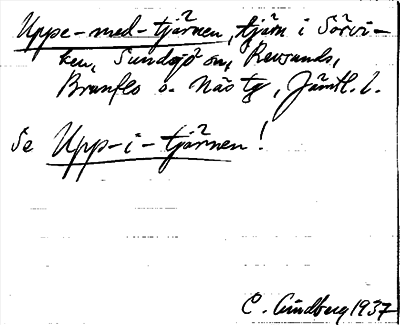 Uppe-med-tjärnen, tjärn i Sörvi-
ken, Sundsjö sn, Revsunds,
Brunflo o. Näs tg, Jämtl. l.
Se Upp-i-tjärnen!
C. Lindberg 1937